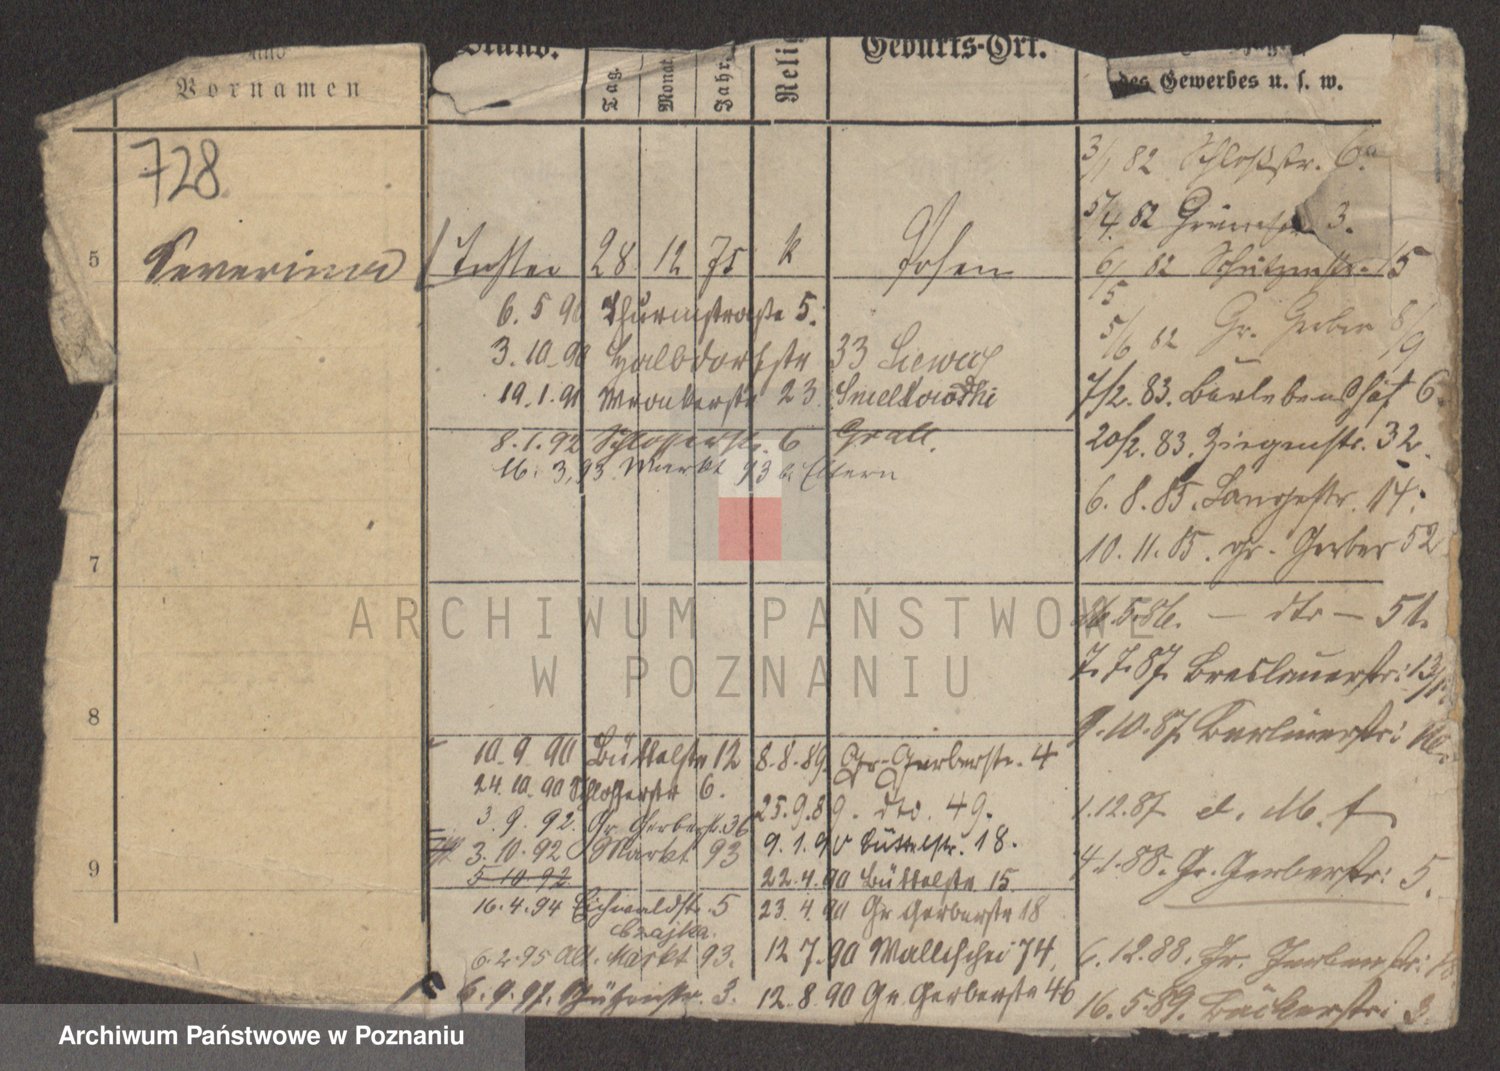 und
Vornamen
Stand.
Tag.
Monat.
Jahr.
Reli
Geburts-Ort.
des Gewerbes u. s. w.
728
5 Severina Tochter 28 12 75 k Posen
3/1 82 Schloßstr. 6.
5/4. 82 3.
6/5 82 Schützenstr. 15
5/6 82 Gr. Gerber 8/9
7/2. 83. Bartlebenshof 6.
20/2. 83. Ziegenstr. 32.
6. 8. 85. Langestr. 14.
10. 11. 85. gr. Gerber 52
26. 5. 86. — dto — 51.
7. 7. 87. Breslauerstr. 13/
9. 10. 87. Berlinerstr.
1. 12. 87 d. M. f
4. 1. 88. Gr. Gerberstr. 5.
6. 12. 88. Gr. Gerberstr.
16. 5. 89. Bäckerstr. 3.
6. 5 90 Thurmstraße 5.
3. 10. 90 Halbdorfstr 33
19. 1. 91 Wronkerstr 23.
8. 1. 92 Schlosserstr. 6 Grall.
16. 3. 93. Markt 93 b. Eltern
7
8
9
10. 9. 90 Büttelstr 12
24. 10. 90 Schlosserstr 6.
3. 9. 92. Gr. Gerberstr. 36
3. 10. 92 Markt 93
5 10 92
16. 4. 94 Eichwaldstr. 5
Czajka.
6. 2. 95 Alt. Markt 93.
6. 9. 97. Schützenstr. 3.
8. 8. 89. Gr. Gerberstr. 4
25. 9. 89. dto. 49.
9. 1. 90 Büttelstr. 18.
22. 4. 90 Büttelstr 15.
23. 4. 90 Gr Gerberstr 18
12 7. 90 Wallischei 74.
12. 8. 90 Gr Gerberstr 46
ARCHIWUM PAŃSTWOWE
W POZNANIU
Archiwum Państwowe w Poznaniu